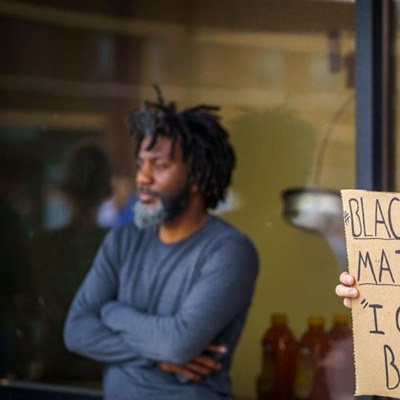 #BLAC
MAT
"I C
B